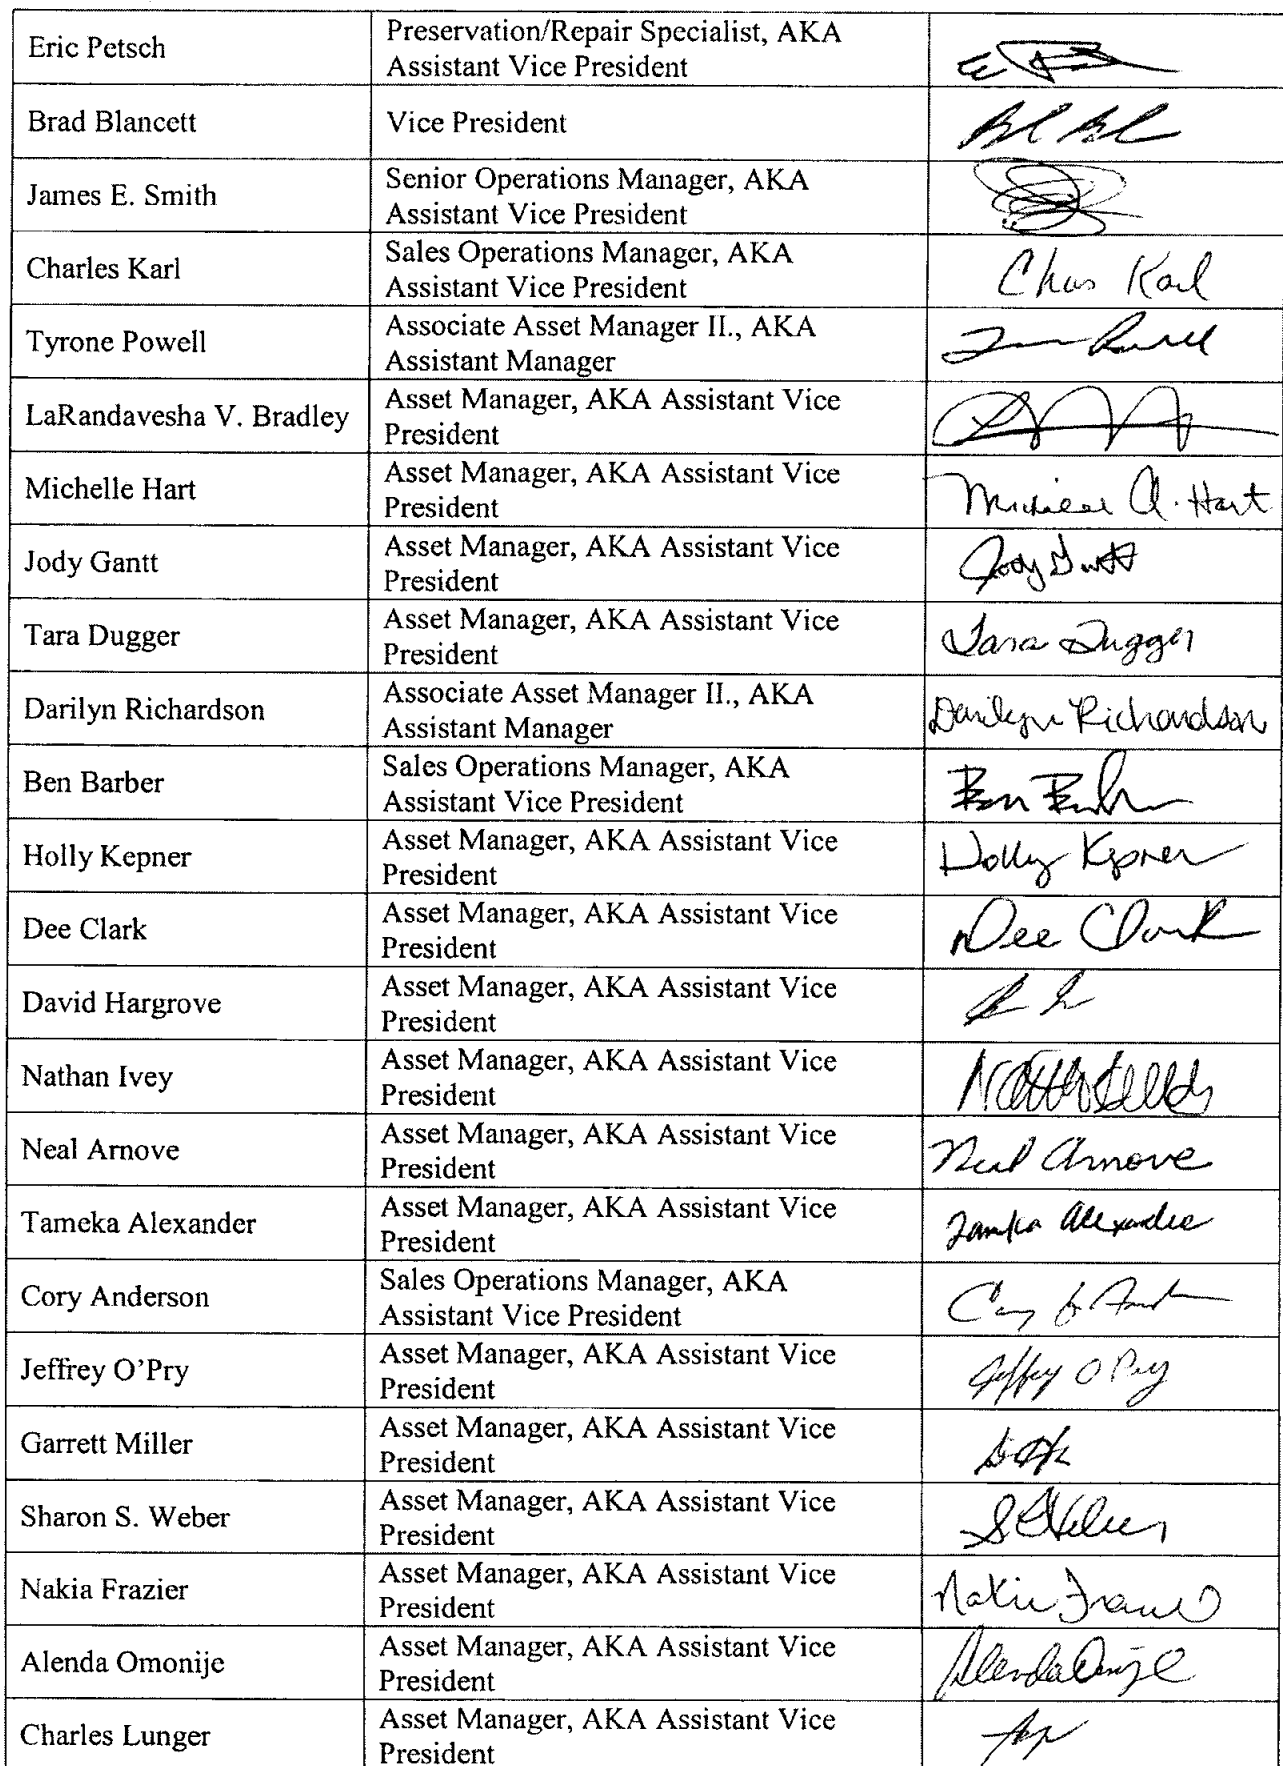 Eric Petsch
Preservation/Repair Specialist, AKA
Assistant Vice President
Brad Blancett
Vice President
James E. Smith
Senior Operations Manager, AKA
Assistant Vice President
Charles Karl
Sales Operations Manager, AKA
Assistant Vice President
Chas Karl
Tyrone Powell
Associate Asset Manager II., AKA
Assistant Manager
LaRandavesha V. Bradley
Asset Manager, AKA Assistant Vice
President
Michelle Hart
Asset Manager, AKA Assistant Vice
President
Michelle A. Hart
Jody Gantt
Asset Manager, AKA Assistant Vice
President
Jody Gantt
Tara Dugger
Asset Manager, AKA Assistant Vice
President
Tara Dugger
Darilyn Richardson
Associate Asset Manager II., AKA
Assistant Manager
Darilyn Richardson
Ben Barber
Sales Operations Manager, AKA
Assistant Vice President
Holly Kepner
Asset Manager, AKA Assistant Vice
President
Holly Kepner
Dee Clark
Asset Manager, AKA Assistant Vice
President
Dee Clark
David Hargrove
Asset Manager, AKA Assistant Vice
President
Nathan Ivey
Asset Manager, AKA Assistant Vice
President
Neal Arnove
Asset Manager, AKA Assistant Vice
President
Neal Arnove
Tameka Alexander
Asset Manager, AKA Assistant Vice
President
Tameka Alexander
Cory Anderson
Sales Operations Manager, AKA
Assistant Vice President
Jeffrey O'Pry
Asset Manager, AKA Assistant Vice
President
Jeffrey O'Pry
Garrett Miller
Asset Manager, AKA Assistant Vice
President
Sharon S. Weber
Asset Manager, AKA Assistant Vice
President
Nakia Frazier
Asset Manager, AKA Assistant Vice
President
Nakia Frazier
Alenda Omonije
Asset Manager, AKA Assistant Vice
President
Alenda Omonije
Charles Lunger
Asset Manager, AKA Assistant Vice
President